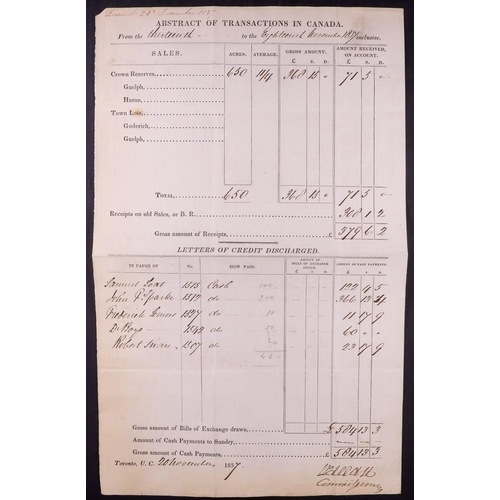 ABSTRACT OF TRANSACTIONS IN CANADA.
From the thirteenth to the Eighteenth November 1837 inclusive.
SALES. ACRES. AVERAGE. GROSS AMOUNT. AMOUNT RECEIVED, ON ACCOUNT.
£ S. D. £ S. D.
Crown Reserves, 650 11/4 368 15 " 71 5 "
Guelph,
Huron,
Town Lots,
Goderich,
Guelph,
TOTAL, 650 368 15 " 71 5 "
Receipts on old Sales, or B. R. 308 1 2
Gross amount of Receipts, £ 379 6 2
LETTERS OF CREDIT DISCHARGED.
IN FAVOR OF No. HOW PAID. AMOUNT OF BILLS OF EXCHANGE DRAWN. AMOUNT OF CASH PAYMENTS.
£ S. D. £ S. D.
Samuel 1515 Cash 122 4 5
John 1512 do 366 13 4
Frederick 1527 do 11 17 9
Dr Boys 1542 do 60 "
Robert 1507 do 23 17 9
Gross amount of Bills of Exchange drawn, £ 584 13 3
Amount of Cash Payments to Sundry,
Gross amount of Cash Payments, £ 584 13 3
Toronto, U. C. 20 November 1837
Commissioner